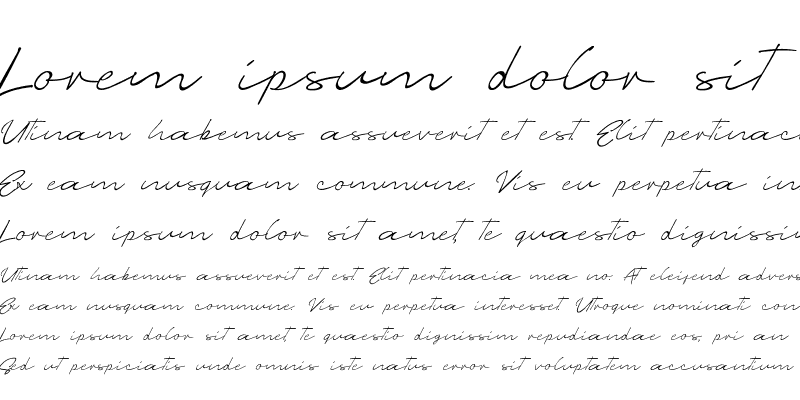 Lorem ipsum dolor sit
Utinam habemus assueverit et est. Elit pertinaci
Ex eam nusquam commune. Vis eu perpetua in
Lorem ipsum dolor sit amet, te quaestio dignissi
Utinam habemus assueverit et est. Elit pertinacia mea no. At eleifend advers
Ex eam nusquam commune. Vis eu perpetua interesset. Utroque nominati con
Lorem ipsum dolor sit amet, te quaestio dignissim repudiandae eos, pri an
Sed ut perspiciatis unde omnis iste natus error sit voluptatem accusantium